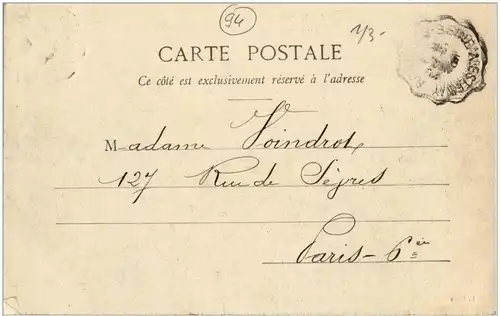 94
1/3-
CARTE POSTALE
Ce côté est exclusivement réservé à l'adresse
Madame Voindrot
127 Rue de Sèvres
Paris-6è